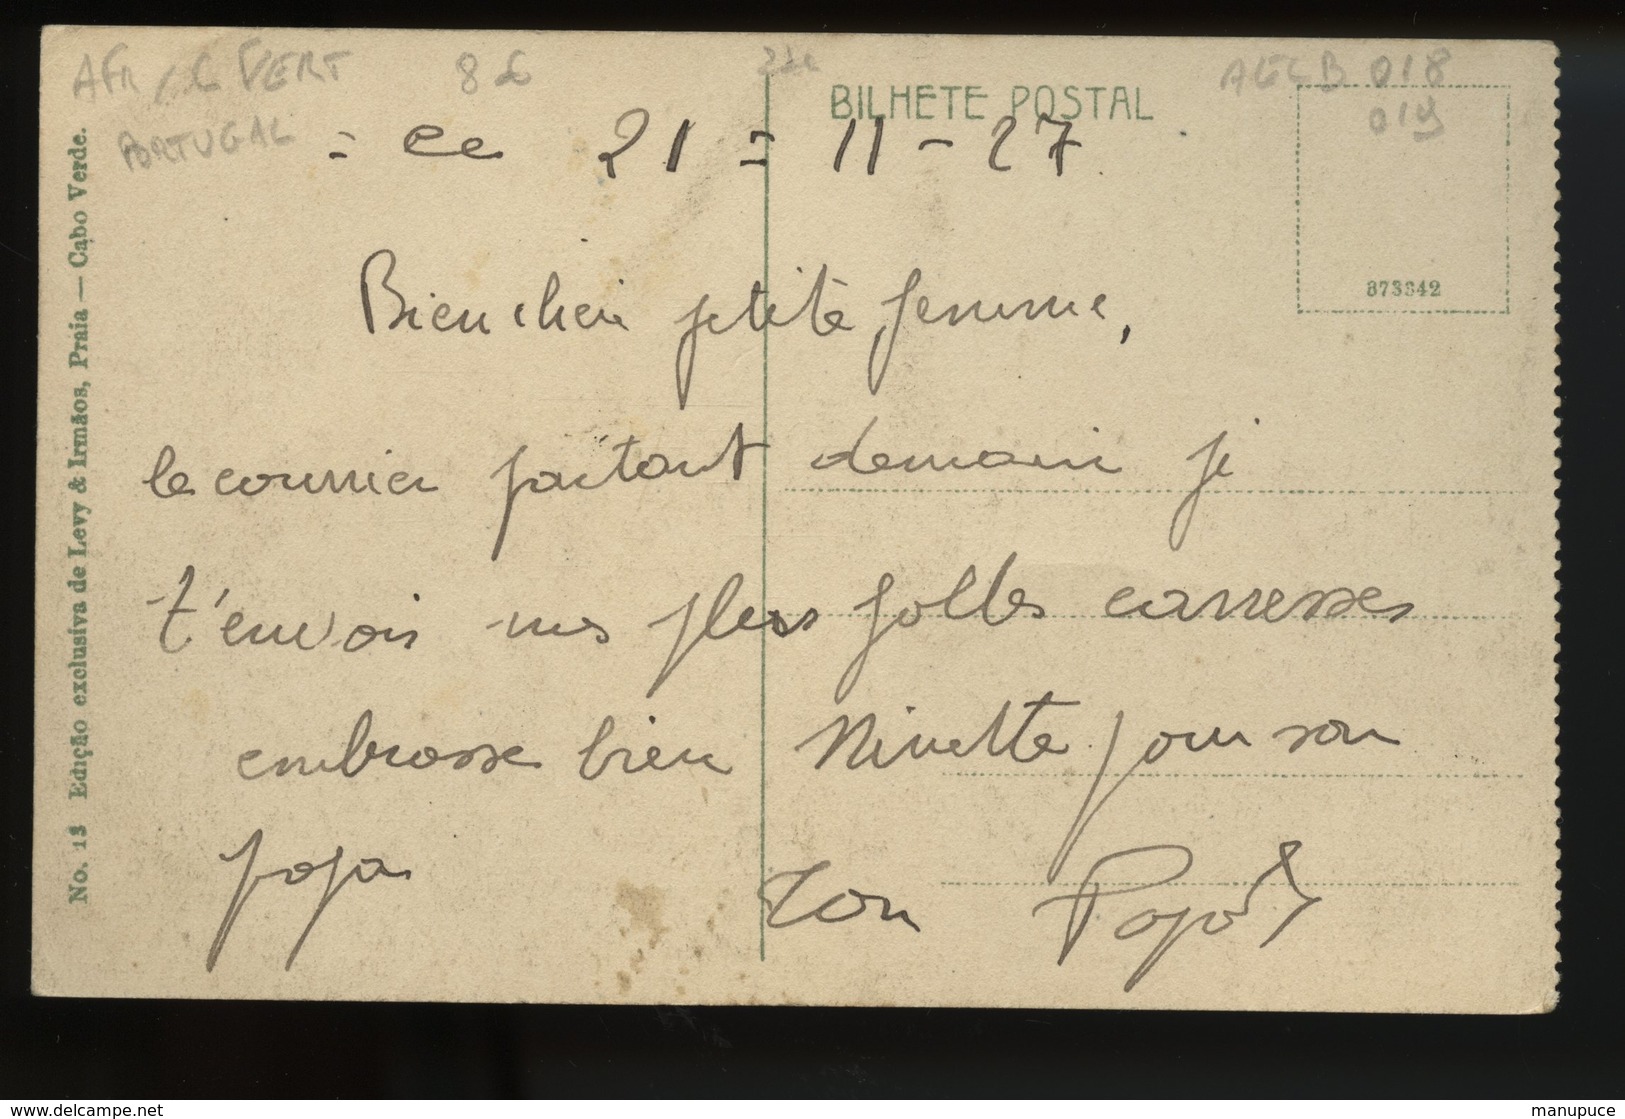 AFR / C VERT
8 £
AECB 018
019
PORTUGAL
BILHETE POSTAL
= Ce 21 = 11 - 27
873342
Bien cher petite femme,
le courrier partant demain je
t'envois mes plus folles carresses
embrasse bien Ninette pour son
papa
Ton
No. 13 Edição exclusiva de Levy & Irmãos, Praia — Cabo Verde.
www.delcampe.net
manupuce